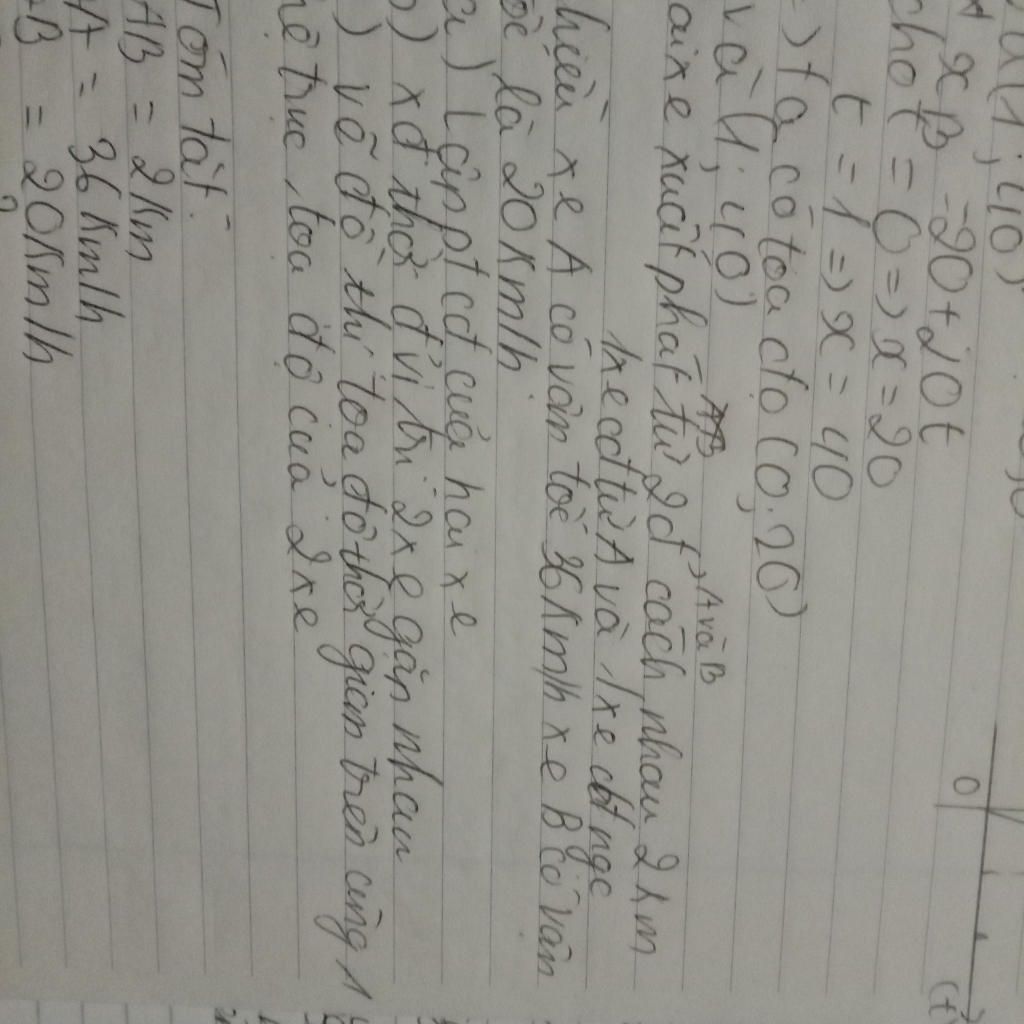 (1; 40)
A xB = 20 + 20t
cho t = 0 => x = 20
t = 1 => x = 40
=) ta có tọa độ (0, 20)
và (1; 40)
A và B
xe xuất phát từ 2đ cách nhau 2km
1xe cđ từ A và 1xe cđ ngc
chiều xe A có vân tốc 36km/h xe B có vân
tốc là 20km/h
a) Lập pt cđ của hai xe
b) xđ thời đ vị trí 2xe gặp nhau
) vẽ đồ thị toạ độ thời gian trên cùng 1
hệ trục toạ độ của 2xe
Tóm tắt:
AB = 2km
A = 36km/h
B = 20km/h
?
0
(t)